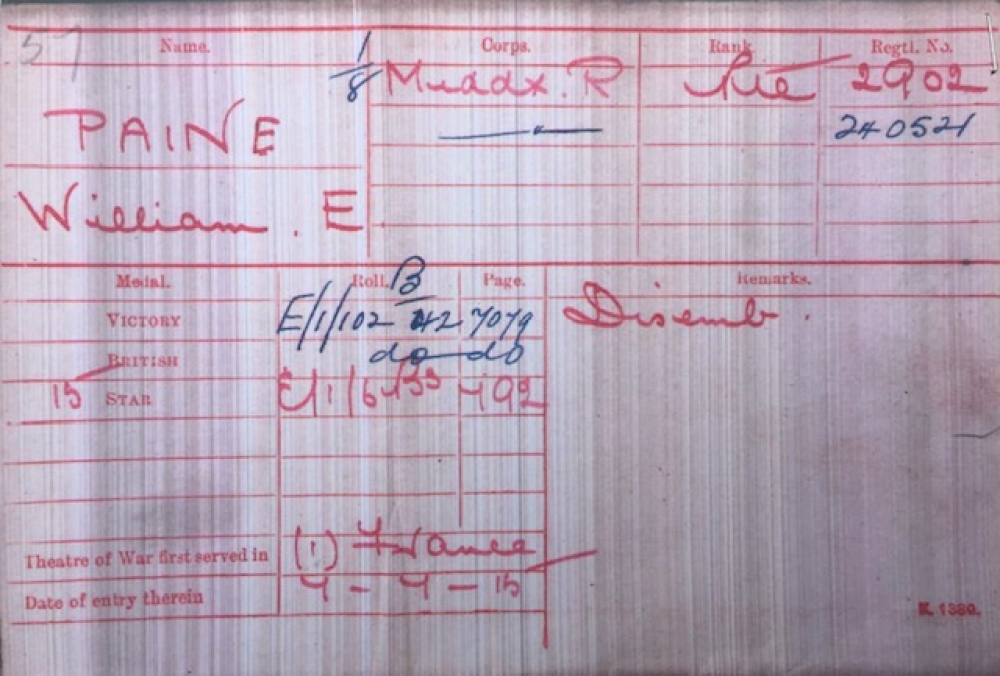 57
Name. Corps. Rank Regtl. No.
1/8 Middx. R Pte 2902
PAINE 240521
William . E
Medal. Roll. Page. Remarks.
B
VICTORY E/1/102 42 7079 Disemb .
BRITISH do do
15 STAR E/1/6 492
Theatre of War first served in (1) France
Date of entry therein 4 - 4 - 15
K. 1380.